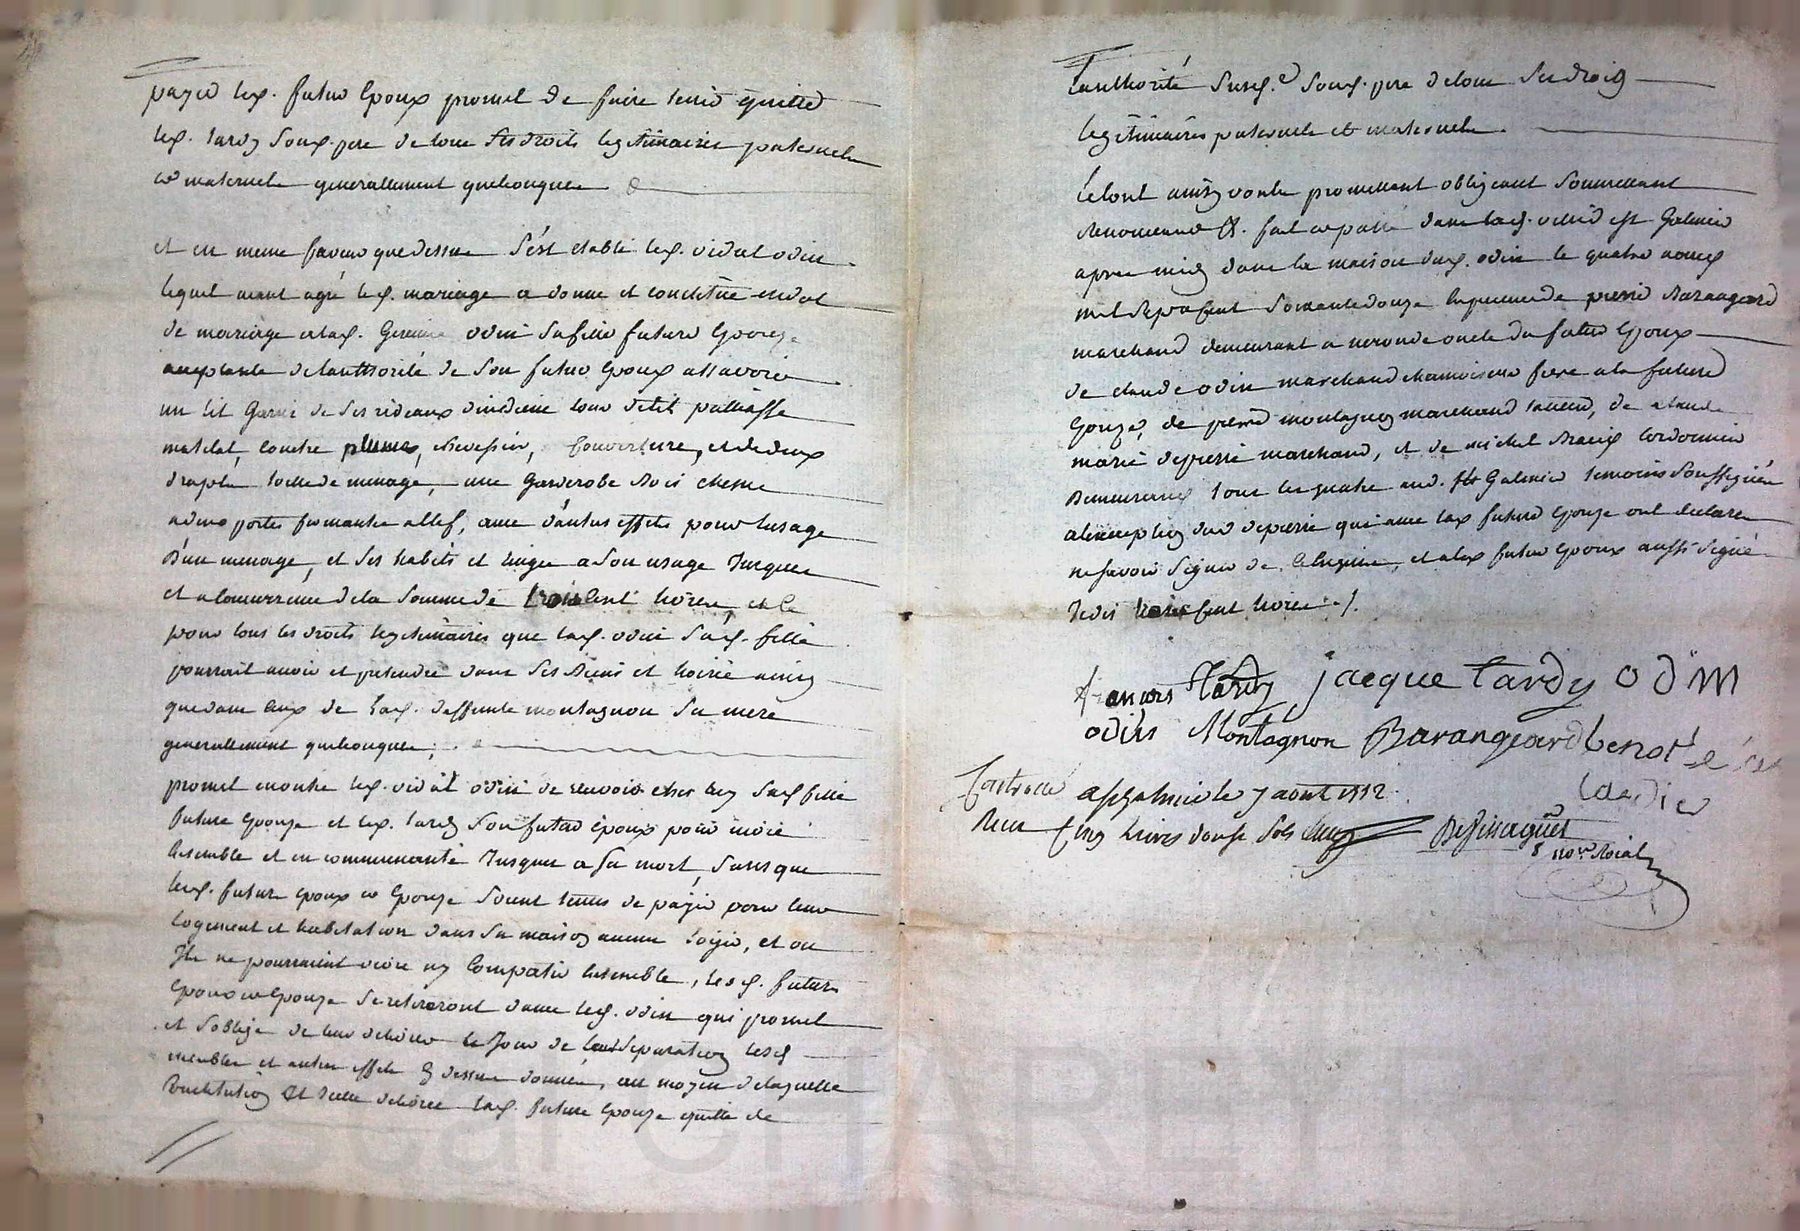 payer led. futur Epoux promet de faire tenir quitte
led. tardy Son d. pere de tous ses droits legitimaires paternels
et maternels generallement quelconques
et en meme faveur que dessus s'est etabli led. vidal odin
lequel ayant agré led. mariage a donné et constitué en dot
de mariage a lad. odin sa fille future Epouze
acceptante de l'authorité de Son futur Epoux assavoir
un lit Garni de Ses rideaux tour de lit palliasse
matelat, coutre plumes, chevessier, Couverture, et de deux
draps toille de menage, une Garderobe Bois chesne
a deux portes fermante a clef, avec d'autres effets pour lusage
d'un menage, et Ses habits et linges a Son usage Jusques
et a concurrence de la Somme de trois Cent livres, et ce
pour tous les droits legitimaires que lad. odin Sad. fille
pourroit avoir et pretendre dans Ses Biens et hoirie ainsy
que dans ceux de lad. deffunte montagnon Sa mere
generallement quelconques,
promet en outre led. vidal odin de recevoir chez luy Sad fille
future Epouze et led. tardy Son futur epoux pour vivre
Ensemble et en communauté Jusques a Sa mort, Sans que
lesd. futurs epoux et Epouze Soient tenus de payer pour leur
logement et habitation dans Sa maison aucun loyer, et ou
Ils ne pourroient vivre ny Compatir Ensemble, lesd. futurs
Epoux et Epouze Se retireront dans led. odin qui promet
et S'oblige de leur delivrer le Jour de leur Separation lesd
meubles et autres effets cy dessus donnés, au moyen de laquelle
Constitution Et icelle delivrée lad. future Epouze quitte de
l'authorité Susd.e Sond. pere de tous Ses droits
legitimaires paternels et maternels.
Celont ainsy voulu promettant obligeant Soumettant
Renonceant &. fait et passé dans lad. ville de st Galmier
apres midy dans la maison dud. odin le quatre aoust
mil Sept cent Soixante douze En presence de pierre Barangeard
marchand demeurant a neronde oncle du futur Epoux
de claude odin marchand chamoiseur frere a la future
Epouze, de pierre montagnon marchand tanneur, de claude
marie depierre marchand, et de michel cordonnier
Demeurants tous les quatre aud. st Galmier temoins Soussignés
a l'exception dud depierre qui avec lad future Epouze ont declaré
ne Savoir Signer de Ce Enquise, et a led futur Epoux aussi Signé
Je dis trois Cent livres ./.
francois tardy jacque tardy odin
odin Montagnon Barangeard
Controllé a st galmier le 7 aout 1772
Recu Cinq livres douze Sols
nore Roial